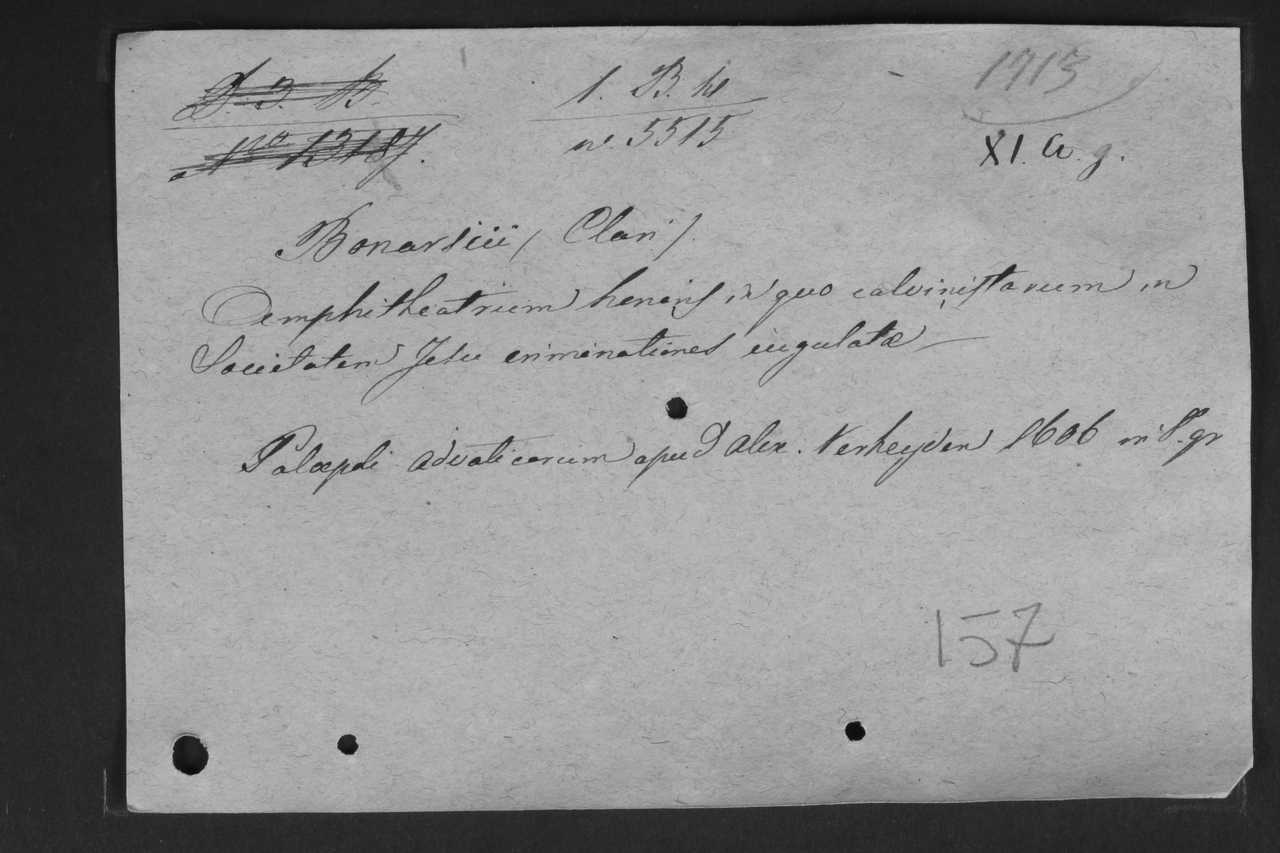 1. B. w 1713
no. 5515 XI. a. g.
Bonarsiii (Clari)
Amphitheatrium honoris in quo calvinistarum in
Societatem Jesu criminationes iugulatæ
Palæpoli advaticorum apud Alex. Verheyden 1606 in 8. gr
157